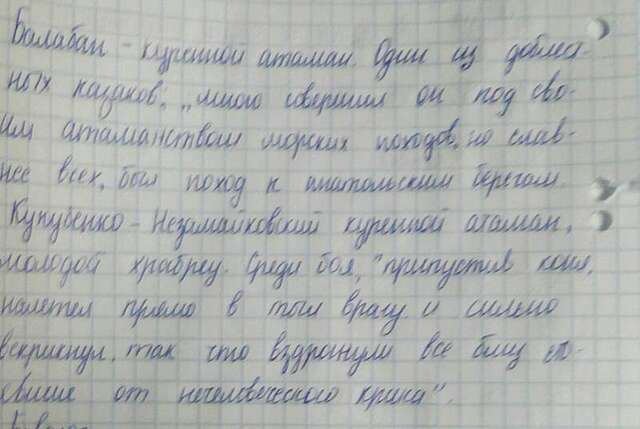 Балабан - куренной атаман. Один из доблес-
ных казаков, „много совершил он под сво-
им атаманством морских походов, но слав-
нее всех, был поход к анатольским берегам.
Кукубенко - Незамайковский куренной атаман,
молодой храбрец. Среди боя, "припустив коня,
налетел прямо в тыл врагу и сильно
вскрикнул, так что вздрогнули все близ сто-
явшие от нечеловеческого крика".